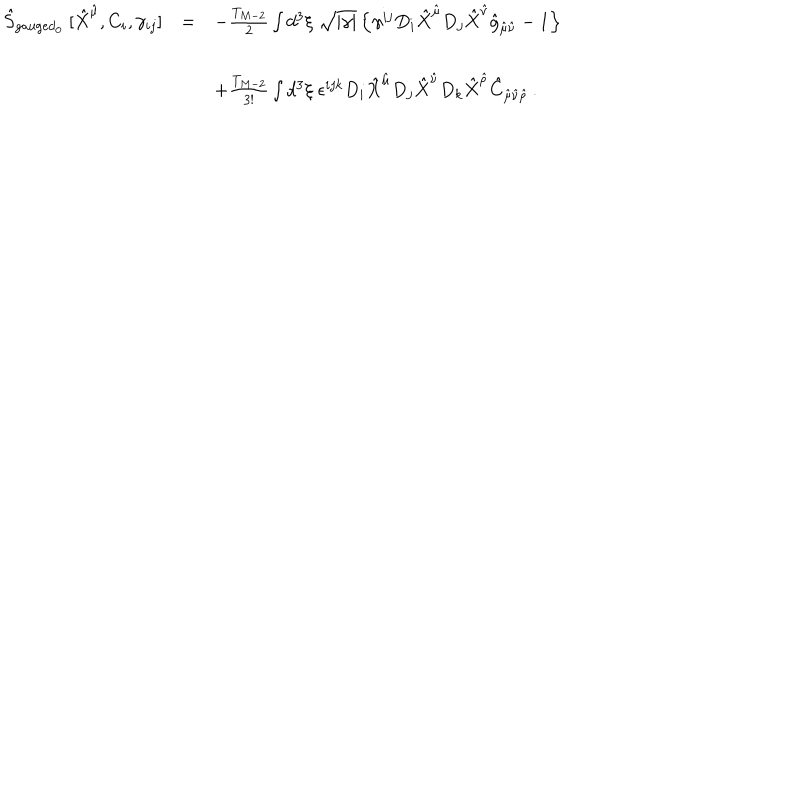 \hat{S}_{gauged_0} [\hat{X}^{\hat{\mu}}, C_i, \gamma_{ij}] = -\frac{T_{M-2}}{2} \int d^3\xi \sqrt{|\gamma|} \left\{ \gamma^{ij} D_i \hat{X}^{\hat{\mu}} D_j \hat{X}^{\hat{\nu}} \hat{g}_{\hat{\mu}\hat{\nu}} - 1 \right\}
+\frac{T_{M-2}}{3!} \int d^3\xi \, \epsilon^{ijk} D_i \hat{X}^{\hat{\mu}} D_j \hat{X}^{\hat{\nu}} D_k \hat{X}^{\hat{\rho}} \hat{C}_{\hat{\mu}\hat{\nu}\hat{\rho}} .